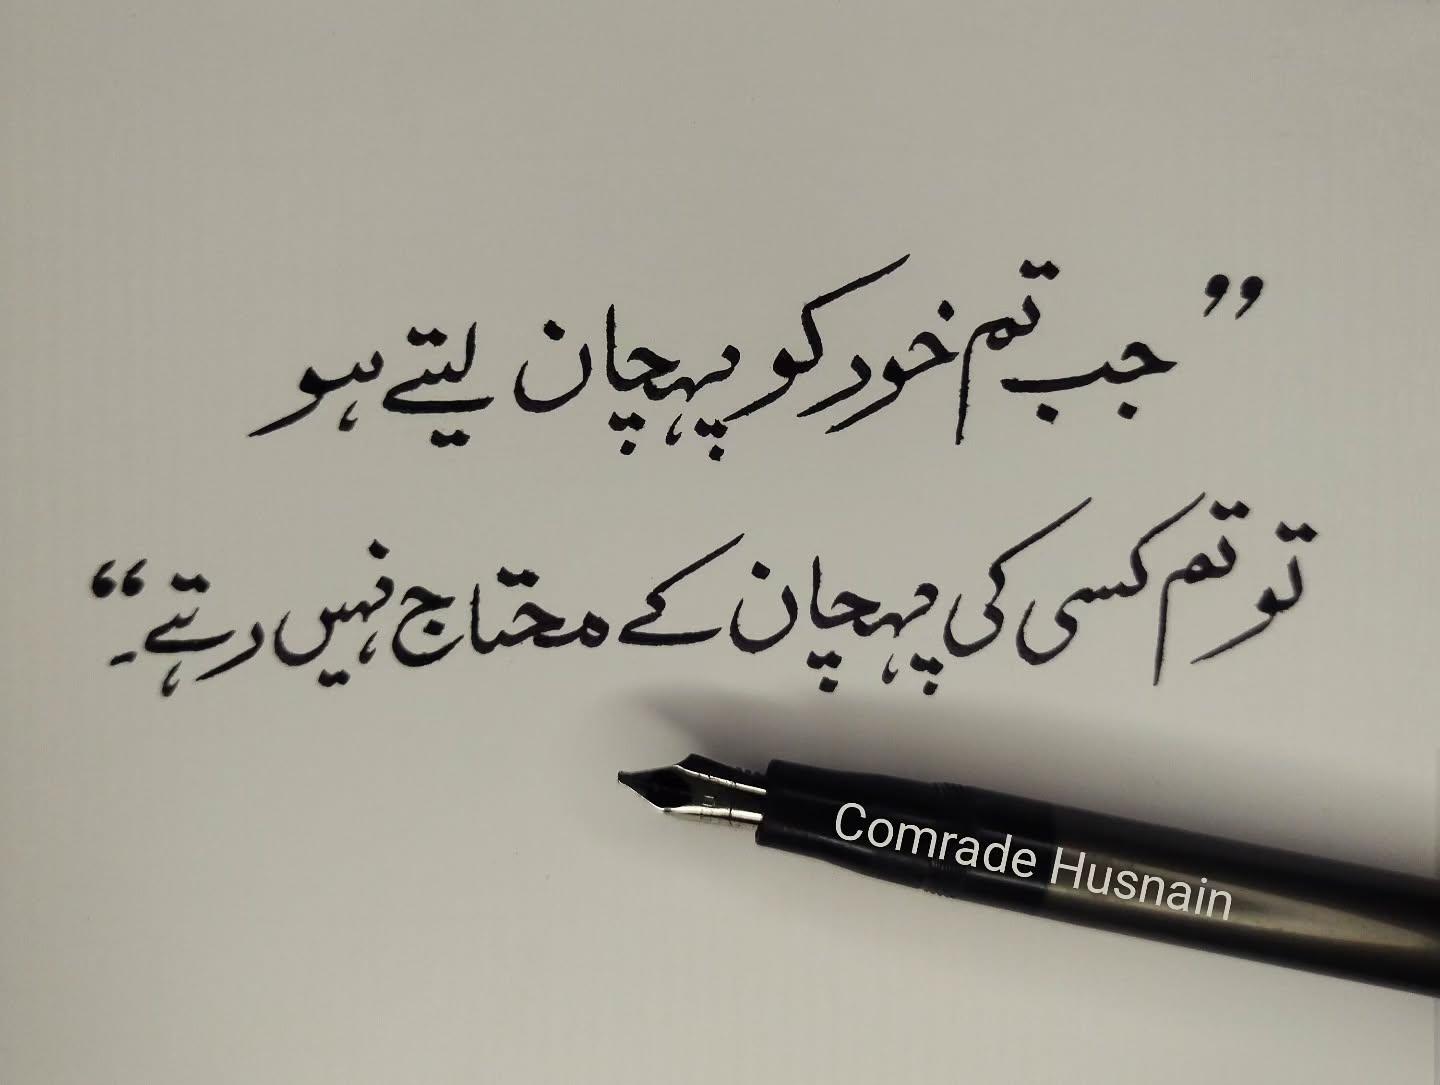 ”جب تم خود کو پہچان لیتے ہو
تو تم کسی کی پہچان کے محتاج نہیں رہتے۔“
Comrade Husnain